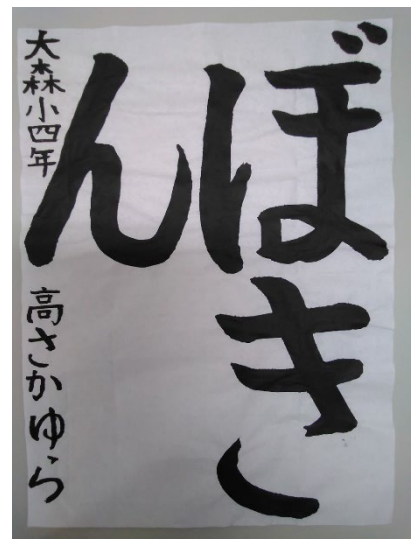 ぼき
ん
大森小四年 高さかゆら